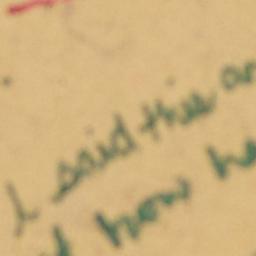 I said this an
how he